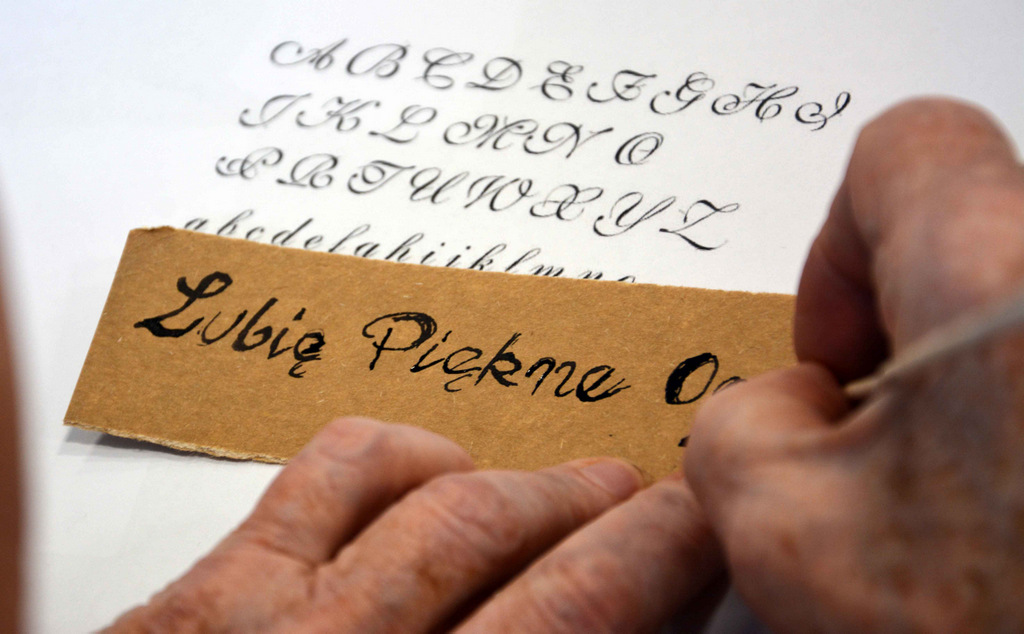 A B C D E F G H I
J K L M N O
P R T U W X Y Z
a b c d e f g h i j k l m n o
Lubię Piękne